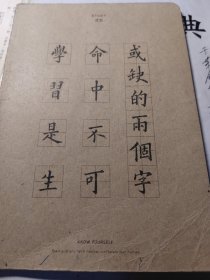 學習是生
命中不可
或缺的兩個字
KNOW YOURSELF
典